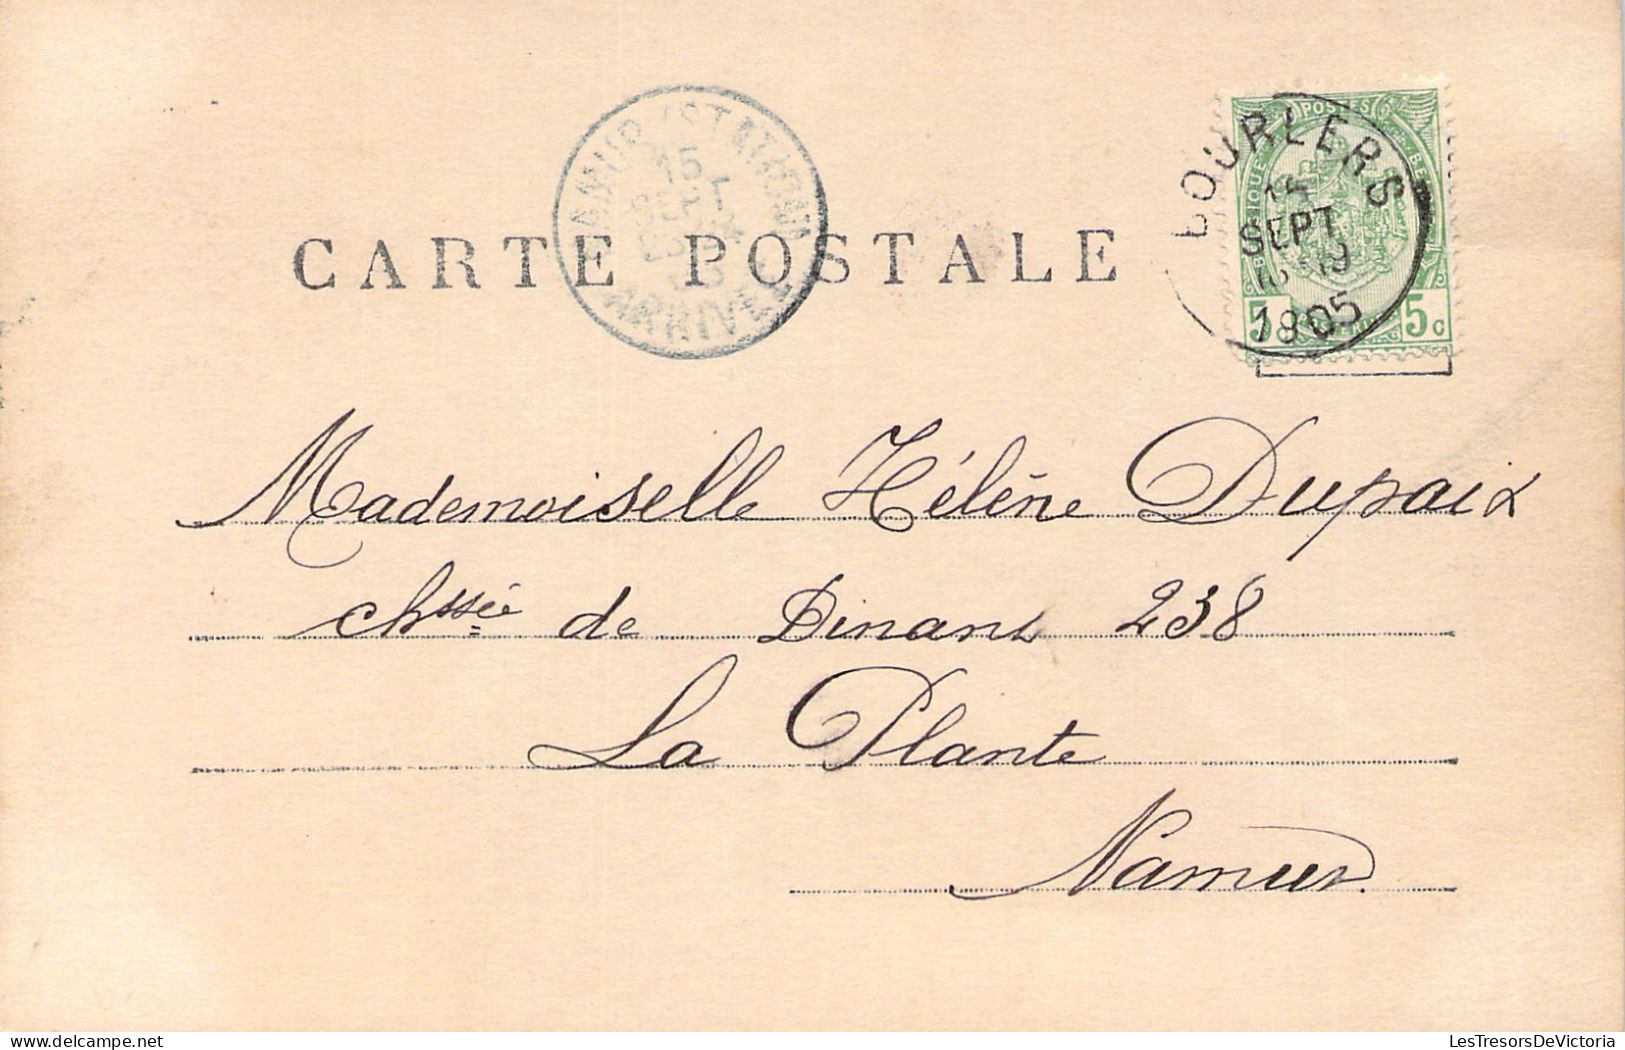 NAMUR (STATION)
15
SEPT
ARRIVÉE
CARTE POSTALE
POSTES
BELGIQUE
5c 5c
BOURLERS
SEPT
1905
Mademoiselle Hélène Dupaix
chssée de Dinant 238
La Plante
Namur.
LesTresorsDeVictoria